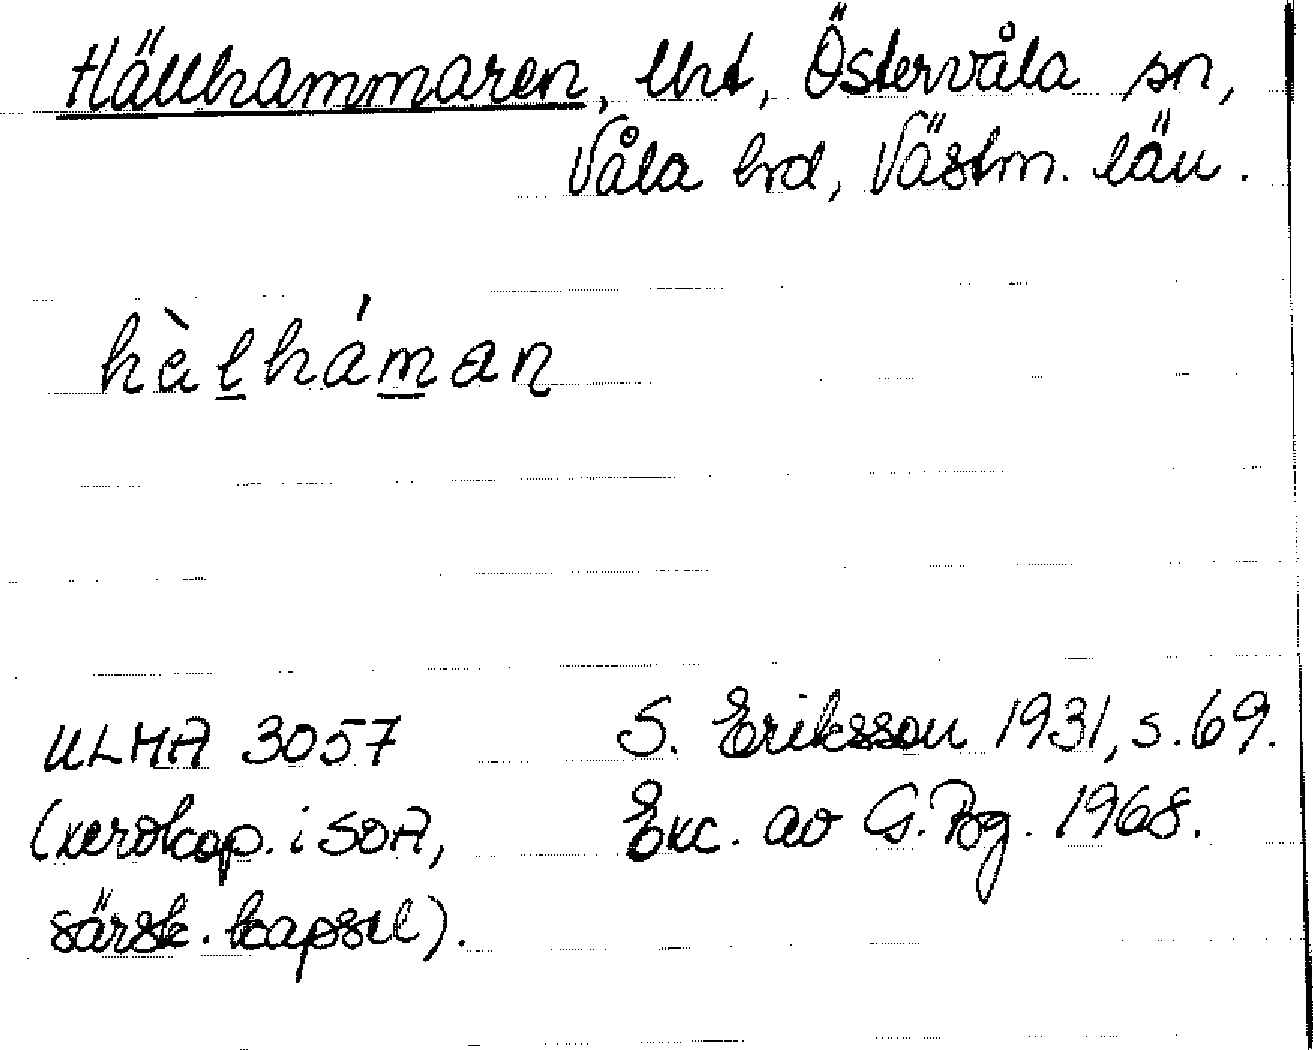 Hällhammaren, lht, Östervåla sn,
Våla hrd, Västm. län.
hèl̲hám̲an
ULMA 3057
(xerokop. i SOA,
särsk. kapsel).
S. Eriksson 1931, s. 69.
Exc. av G. Bg. 1968.